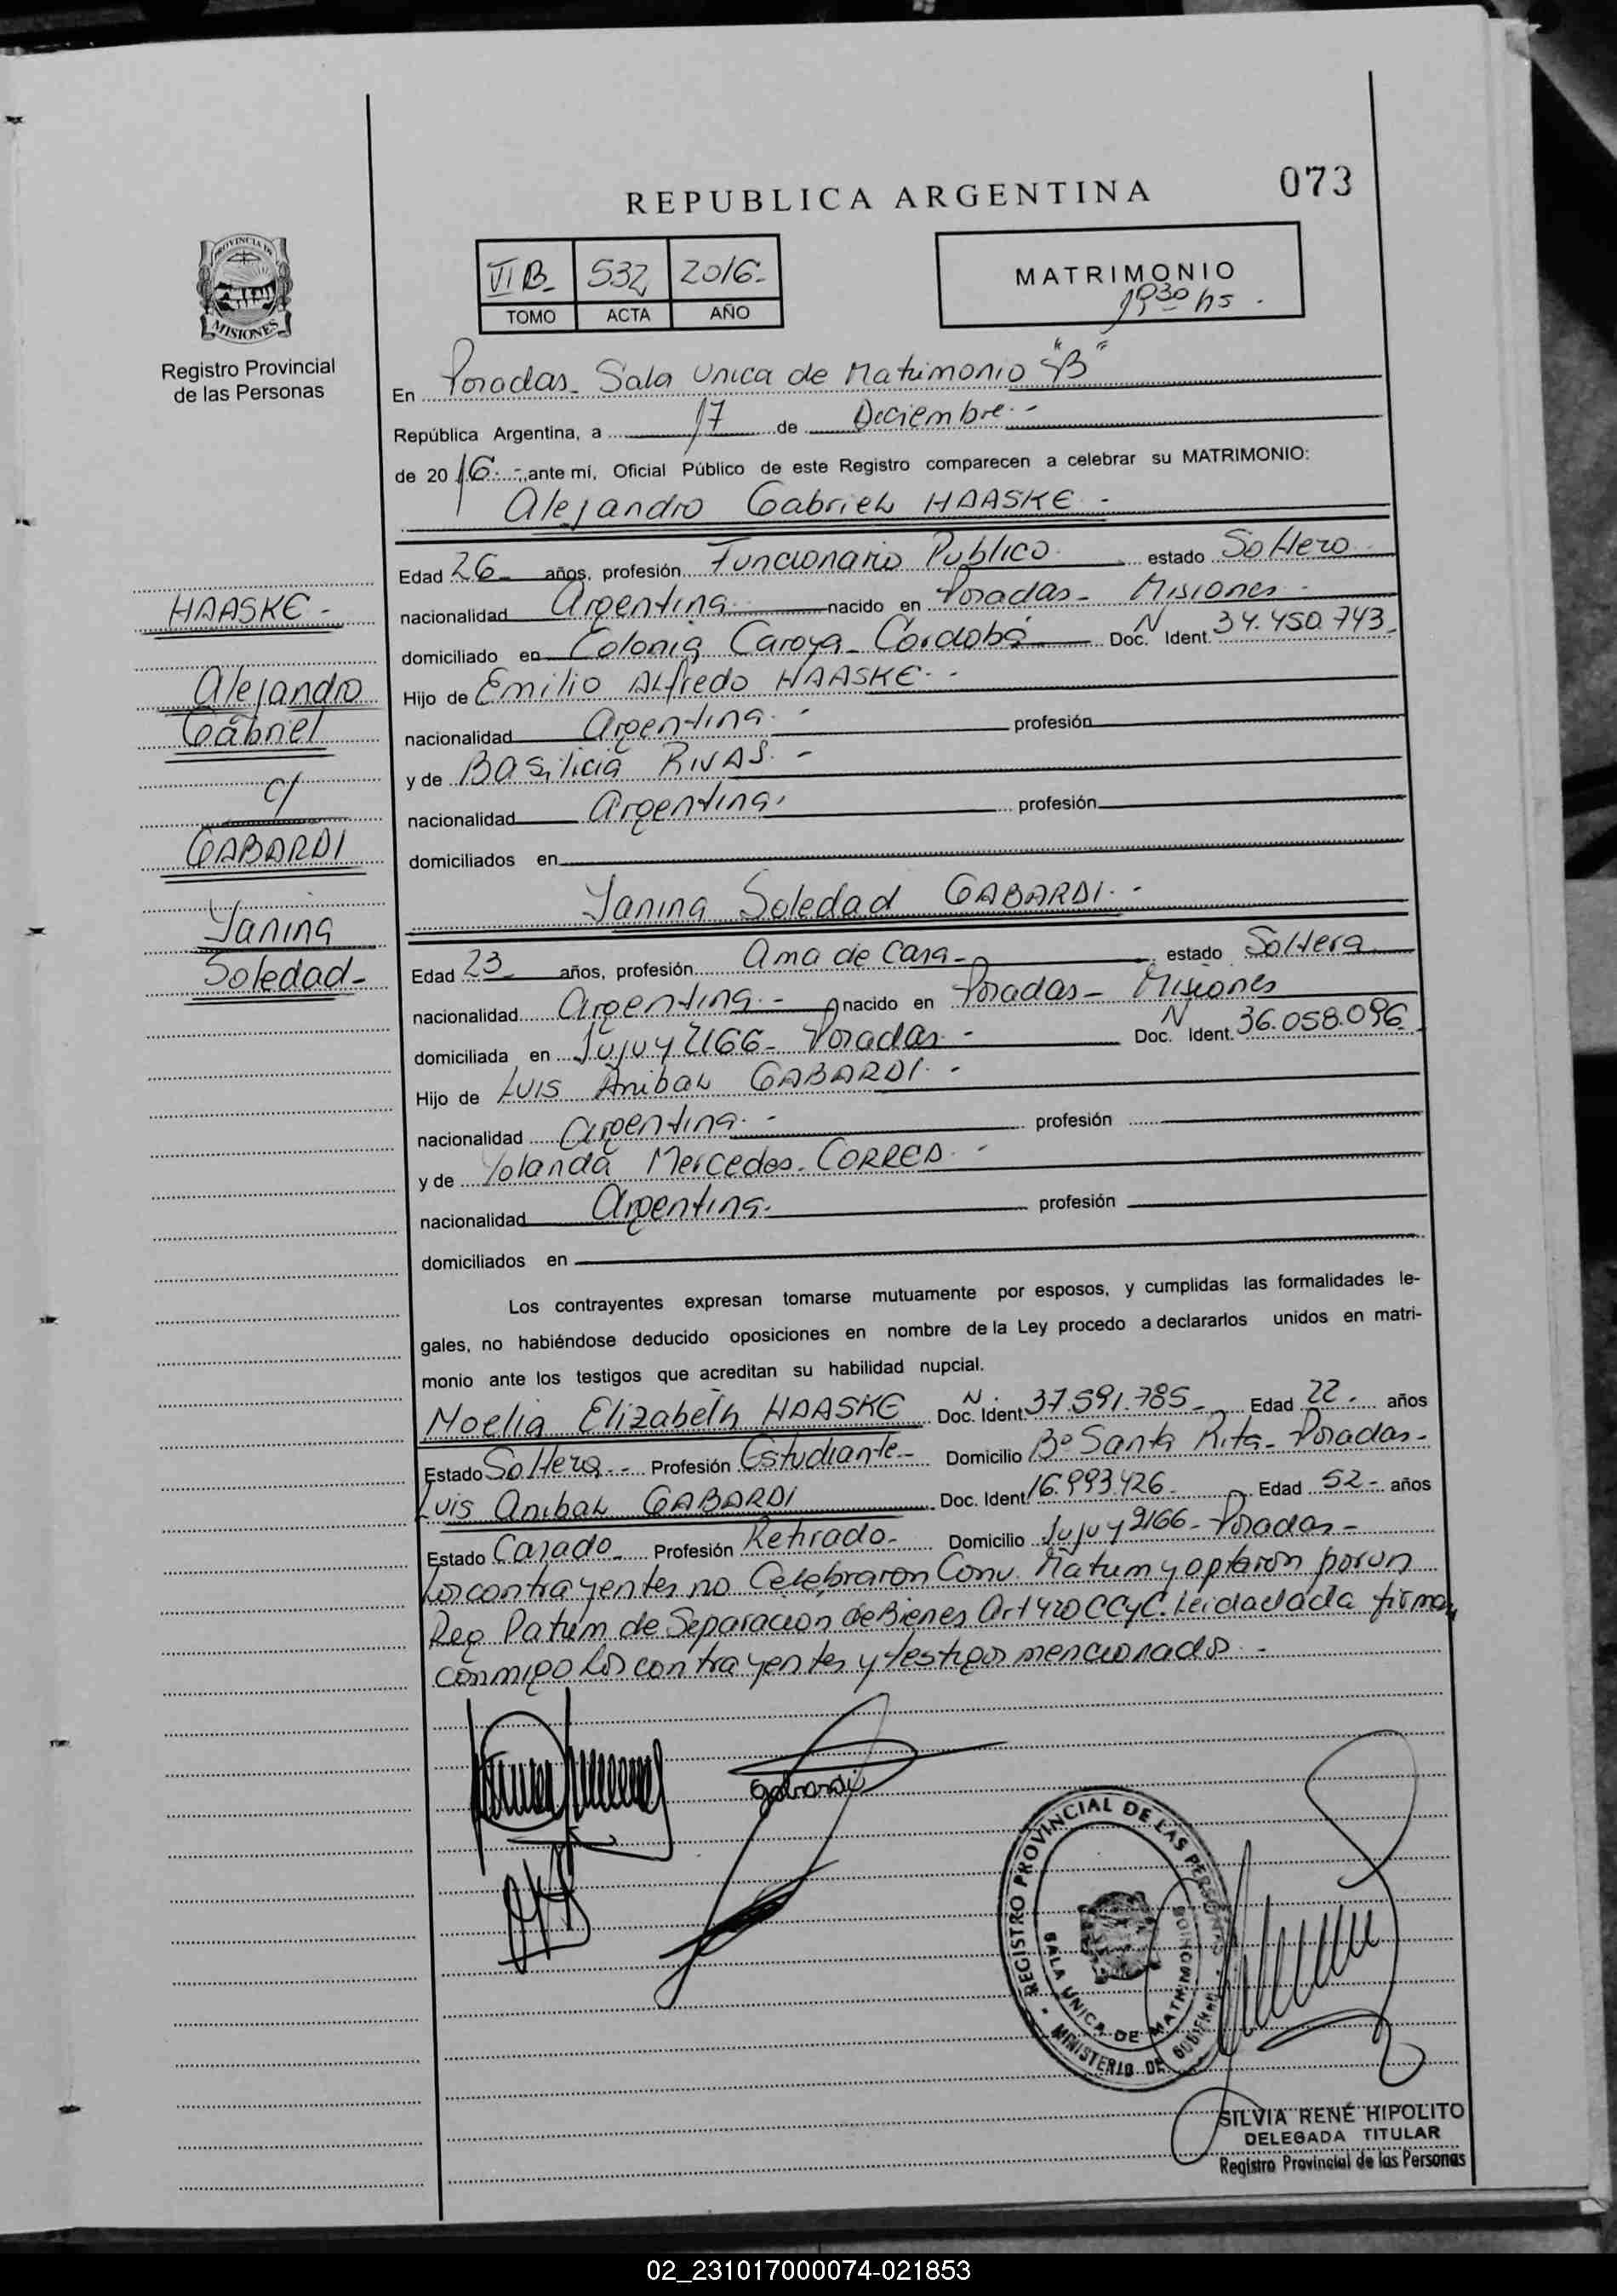 073
REPUBLICA ARGENTINA
PROVINCIA DE
MISIONES
Registro Provincial
de las Personas
VI B- 532 2016-
TOMO ACTA AÑO
MATRIMONIO
1930 hs.
En Posadas- Sala Unica de Matrimonio "B"
República Argentina, a 17 de Diciembre.-
de 2016.-, ante mí, Oficial Público de este Registro comparecen a celebrar su MATRIMONIO:
Alejandro Gabriel HAASKE.-
Edad 26- años, profesión Funcionario Publico. estado Soltero
nacionalidad Argentina.- nacido en Posadas- Misiones.-
domiciliado en Colonia Caroya- Cordoba Doc. N Ident. 34.450.743-
Hijo de Emilio Alfredo HAASKE.-
nacionalidad Argentina.- profesión
y de Basilicia RIVAS.-
nacionalidad Argentina. profesión
domiciliados en
Yanina Soledad GABARDI.-
Edad 23- años, profesión Ama de Casa- estado Soltera
nacionalidad Argentina.- nacido en Posadas- Misiones
domiciliada en Jujuy 2166- Posadas.- Doc. N Ident. 36.058.096
Hijo de Luis Anibal GABARDI.-
nacionalidad Argentina.- profesión
y de Yolanda Mercedes CORREA.-
nacionalidad Argentina. profesión
domiciliados en
Los contrayentes expresan tomarse mutuamente por esposos, y cumplidas las formalidades le-
gales, no habiéndose deducido oposiciones en nombre de la Ley procedo a declararlos unidos en matri-
monio ante los testigos que acreditan su habilidad nupcial.
Noelia Elizabeth HAASKE Doc. N Ident. 37.591.785- Edad 22- años
Estado Soltera.- Profesión Estudiante- Domicilio Bº Santa Rita- Posadas-
Luis Anibal GABARDI Doc. Ident. 16.993.426- Edad 52- años
Estado Casado- Profesión Retirado- Domicilio Jujuy 2166- Posadas-
Los contrayentes no Celebraron Conv. Matrim y optaron por un
Reg Patrim de Separacion de Bienes Art 420 CCyC. Leida el acta firman
conmigo los contrayentes y testigos mencionados.-
HAASKE-
Alejandro
Gabriel
c/
GABARDI
Yanina
Soledad-
Gabardi
REGISTRO PROVINCIAL DE LAS PERSONAS
SALA UNICA DE MATRIMONIOS
MINISTERIO DE GOBIERNO
SILVIA RENÉ HIPOLITO
DELEGADA TITULAR
Registro Provincial de las Personas
02_231017000074-021853